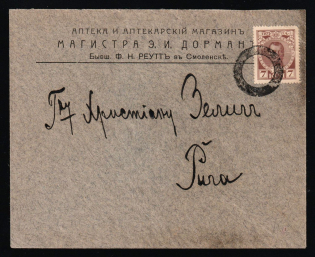 АПТЕКА И АПТЕКАРСКІЙ МАГАЗИНЪ
МАГИСТРА Э. И. ДОРМАН
Бывш. Ф. Н. РЕУТТЪ въ Смоленскѣ.
7 7
Христіану
Рига